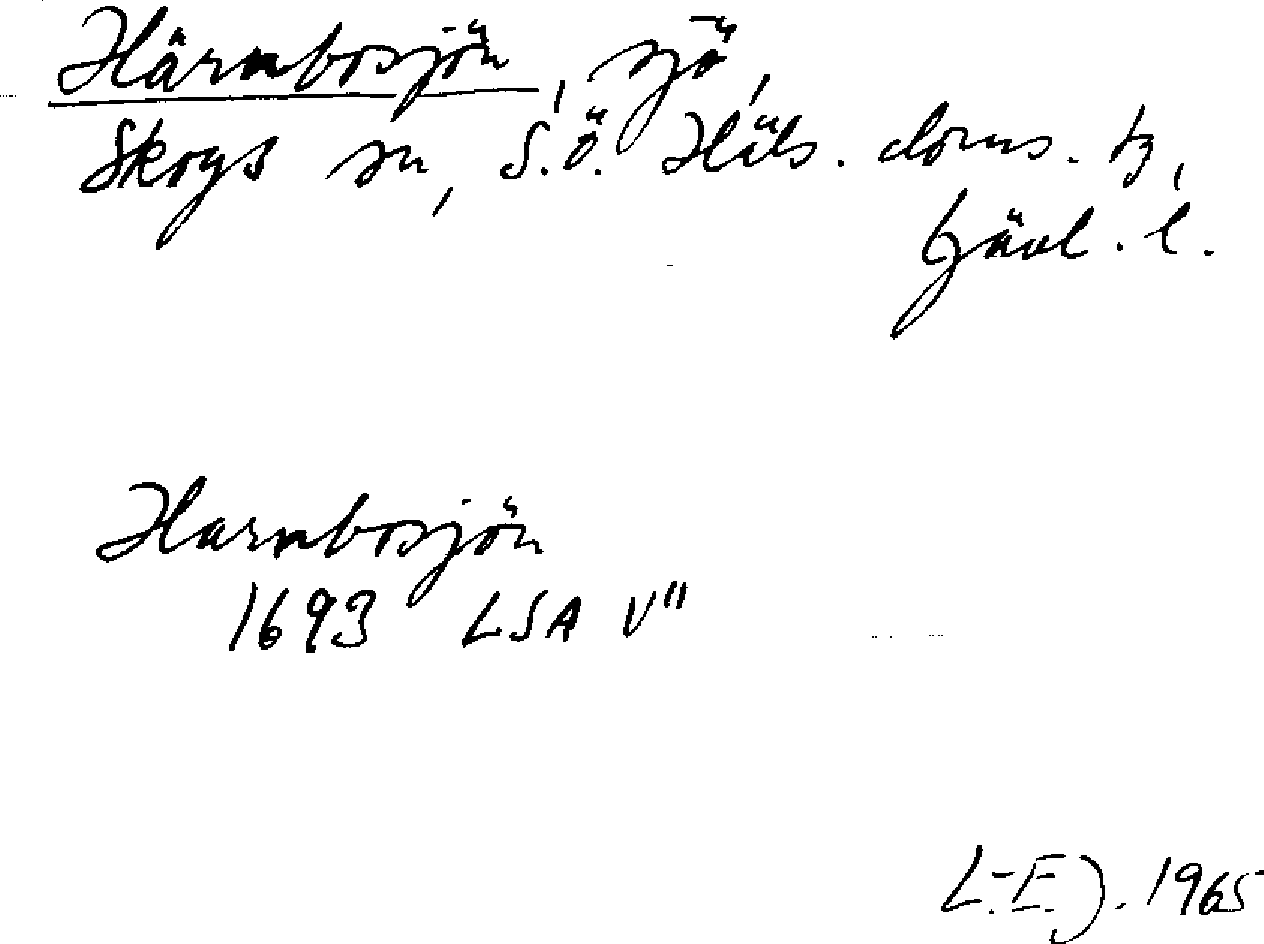 Härnbosjön, sjö,
Skogs sn, S.Ö. Häls. doms. tg,
Gävl. l.
Harnbosjön
1693 LSA V"
L.-E.J. 1965